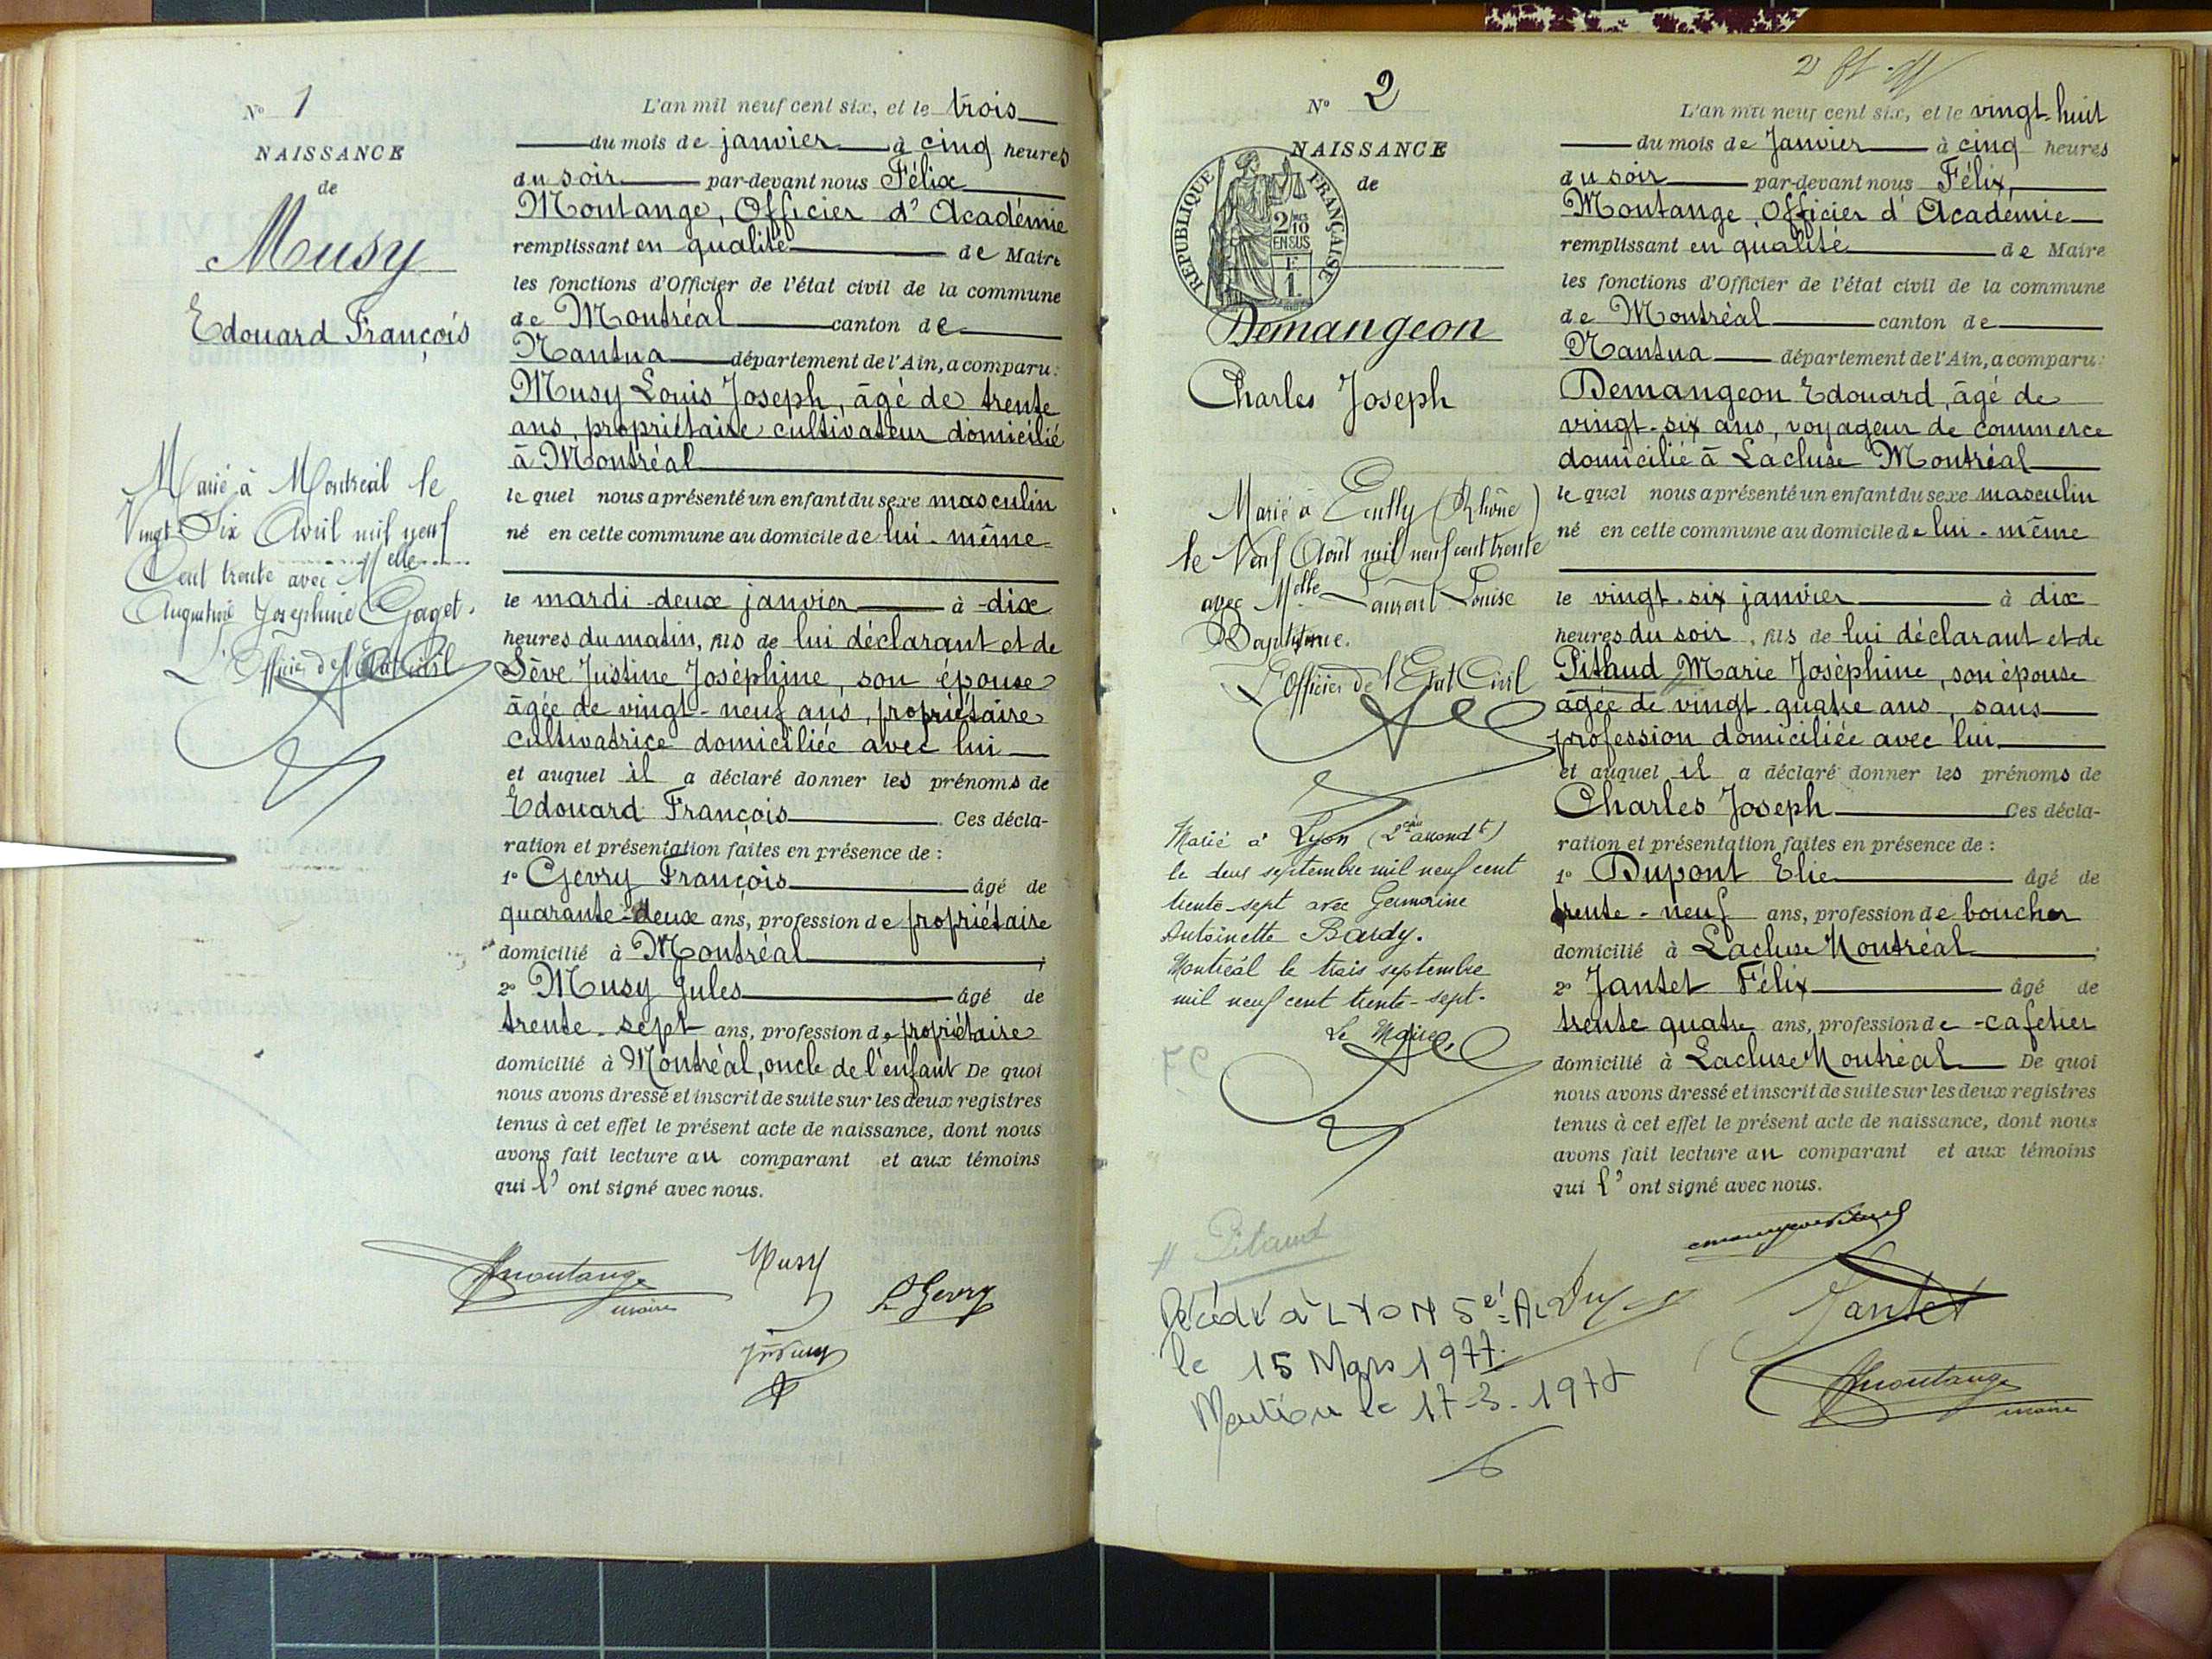 N° 1
NAISSANCE
de
Musy
Edouard François
Marié à Montréal le
Vingt Six Avril mil neuf
Cent trente avec Melle
Augustine Joséphine Gaget.
L'Officier de l'Etat Civil
L'an mil neuf cent six, et le trois
du mois de janvier à cinq heures
du soir par-devant nous Félix
Montange, Officier d'Académie
remplissant en qualité de Maire
les fonctions d'Officier de l'état civil de la commune
de Montréal canton de
Nantua département de l'Ain, a comparu :
Musy Louis Joseph, âgé de trente
ans, propriétaire cultivateur domicilié
à Montréal
le quel nous a présenté un enfant du sexe masculin
né en cette commune au domicile de lui-même
le mardi deux janvier à dix
heures du matin, fils de lui déclarant et de
Sève Justine Joséphine, son épouse
âgée de vingt-neuf ans, propriétaire
cultivatrice domiciliée avec lui
et auquel il a déclaré donner les prénoms de
Edouard François Ces décla-
ration et présentation faites en présence de :
1° Gevry François âgé de
quarante-deux ans, profession de propriétaire
domicilié à Montréal ;
2° Musy Jules âgé de
trente-sept ans, profession de propriétaire
domicilié à Montréal, oncle de l'enfant De quoi
nous avons dressé et inscrit de suite sur les deux registres
tenus à cet effet le présent acte de naissance, dont nous
avons fait lecture au comparant et aux témoins
qui l'ont signé avec nous.
Montange Musy
maire F Gevry
2
N° 2
NAISSANCE
de
REPUBLIQUE FRANÇAISE
2/10
EN SUS
1
Demangeon
Charles Joseph
Marié à Ecully (Rhône)
le Neuf Août mil neuf cent trente
avec Melle Laurent Louise
Baptistine.
L'Officier de l'Etat Civil
Marié à Lyon (2ème arrondt)
le deux septembre mil neuf cent
trente-sept avec Germaine
Antoinette Bardy.
Montréal le trois septembre
mil neuf cent trente-sept.
Le Maire,
Pitaud
Décédé à LYON 5e Ar
le 15 Mars 1977.
Mention le 17-3-1977
L'an mil neuf cent six, et le vingt-huit
du mois de Janvier à cinq heures
du soir par-devant nous Félix
Montange Officier d'Académie
remplissant en qualité de Maire
les fonctions d'Officier de l'état civil de la commune
de Montréal canton de
Nantua département de l'Ain, a comparu :
Demangeon Edouard, âgé de
vingt-six ans, voyageur de commerce
domicilié à Lacluse Montréal
le quel nous a présenté un enfant du sexe masculin
né en cette commune au domicile de lui-même
le vingt-six janvier à dix
heures du soir, fils de lui déclarant et de
Pitaud Marie Joséphine, son épouse
âgée de vingt-quatre ans, sans
profession domiciliée avec lui
et auquel il a déclaré donner les prénoms de
Charles Joseph Ces décla-
ration et présentation faites en présence de :
1° Dupont Elie âgé de
trente-neuf ans, profession de boucher
domicilié à Lacluse Montréal ;
2° Jantet Félix âgé de
trente quatre ans, profession de cafetier
domicilié à Lacluse Montréal De quoi
nous avons dressé et inscrit de suite sur les deux registres
tenus à cet effet le présent acte de naissance, dont nous
avons fait lecture au comparant et aux témoins
qui l'ont signé avec nous.
Jantet
Montange
maire